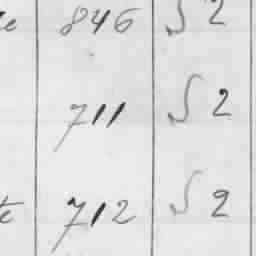 846 S 2
711 S 2
te 712 S 2